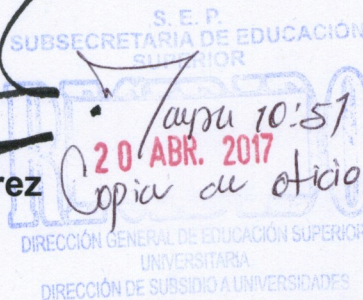 S. E. P.
SUBSECRETARÍA DE EDUCACIÓN
SUPERIOR
10:51
20 ABR. 2017
rez
Copia de oficio
DIRECCIÓN GENERAL DE EDUCACIÓN SUPERIOR
UNIVERSITARIA
DIRECCIÓN DE SUBSIDIO A UNIVERSIDADES